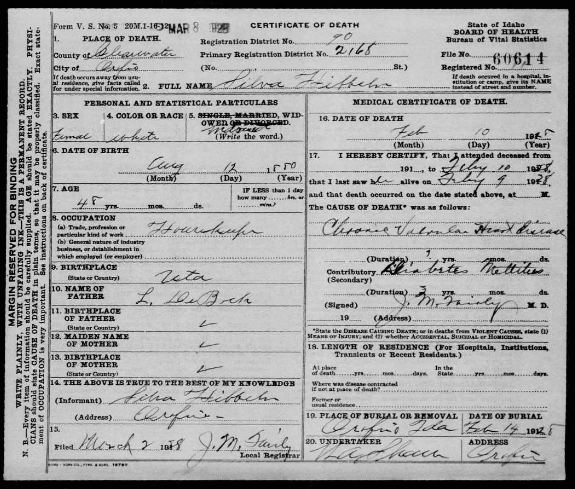 Form V. S. No. 5 20M.1-16-12 MAR 8 1928
CERTIFICATE OF DEATH
State of Idaho
BOARD OF HEALTH
Bureau of Vital Statistics
1. PLACE OF DEATH.
Registration District No. 90
County of Clearwater
Primary Registration District No. 2168
File No. 60614
City of Orofino
(No. St.)
Registered No.
If death occurs away from usual residence, give facts called for under special information.
2. FULL NAME Silva Hibbeln
If death occurred in a hospital, institution or camp, give its NAME instead of street and number.
PERSONAL AND STATISTICAL PARTICULARS
3. SEX
Femal
4. COLOR OR RACE
white
5. SINGLE, MARRIED, WIDOWED OR DIVORCED.
Widowed
(Write the word.)
6. DATE OF BIRTH
Aug 12 1880
(Month) (Day) (Year)
7. AGE
IF LESS than 1 day how many hrs. or min?
48 yrs. mos. ds.
8. OCCUPATION
(a) Trade, profession or particular kind of work
(b) General nature of industry, business, or establishment in which employed (or employer)
Housekeeper
9. BIRTHPLACE
(State or Country)
Uta
10. NAME OF FATHER
11. BIRTHPLACE OF FATHER
(State or Country)
12. MAIDEN NAME OF MOTHER
13. BIRTHPLACE OF MOTHER
(State or Country)
14. THE ABOVE IS TRUE TO THE BEST OF MY KNOWLEDGE
(Informant) Silva Hibbeln
(Address) Orofino
15.
Filed March 2 1928 J. M. Fairly
Local Registrar
MEDICAL CERTIFICATE OF DEATH
16. DATE OF DEATH
Feb 10 1928
(Month) (Day) (Year)
17. I HEREBY CERTIFY, That I attended deceased from
191 to Feby 10 1928
that I last saw her alive on Feby 9 1928
and that death occurred on the date stated above, at M.
The CAUSE OF DEATH* was as follows:
Chronic Valvular Heart Disease
(Duration) ? yrs. mos. ds.
Contributory Diabetes Mellitus
(Secondary)
(Duration) ? yrs. mos. ds.
(Signed) J. M. Fairly M. D.
19 (Address)
*State the DISEASE CAUSING DEATH; or in deaths from VIOLENT CAUSES, state (1) MEANS OF INJURY; and (2) whether ACCIDENTAL, SUICIDAL or HOMICIDAL.
18. LENGTH OF RESIDENCE (For Hospitals, Institutions, Transients or Recent Residents.)
At place of death yrs. mos. days. In the State yrs. mos. ds.
Where was disease contracted if not at place of death?
Former or usual residence
19. PLACE OF BURIAL OR REMOVAL
DATE OF BURIAL
Orofino Ida Feb 14 1928
20. UNDERTAKER
ADDRESS
Orofino
MARGIN RESERVED FOR BINDING
WRITE PLAINLY, WITH UNFADING INK—THIS IS A PERMANENT RECORD.
N. B.—Every item of information should be carefully supplied. AGE should be stated EXACTLY. PHYSICIANS should state CAUSE OF DEATH in plain terms, so that it may be properly classified. Exact statement of OCCUPATION is very important. See instructions on back of certificate.